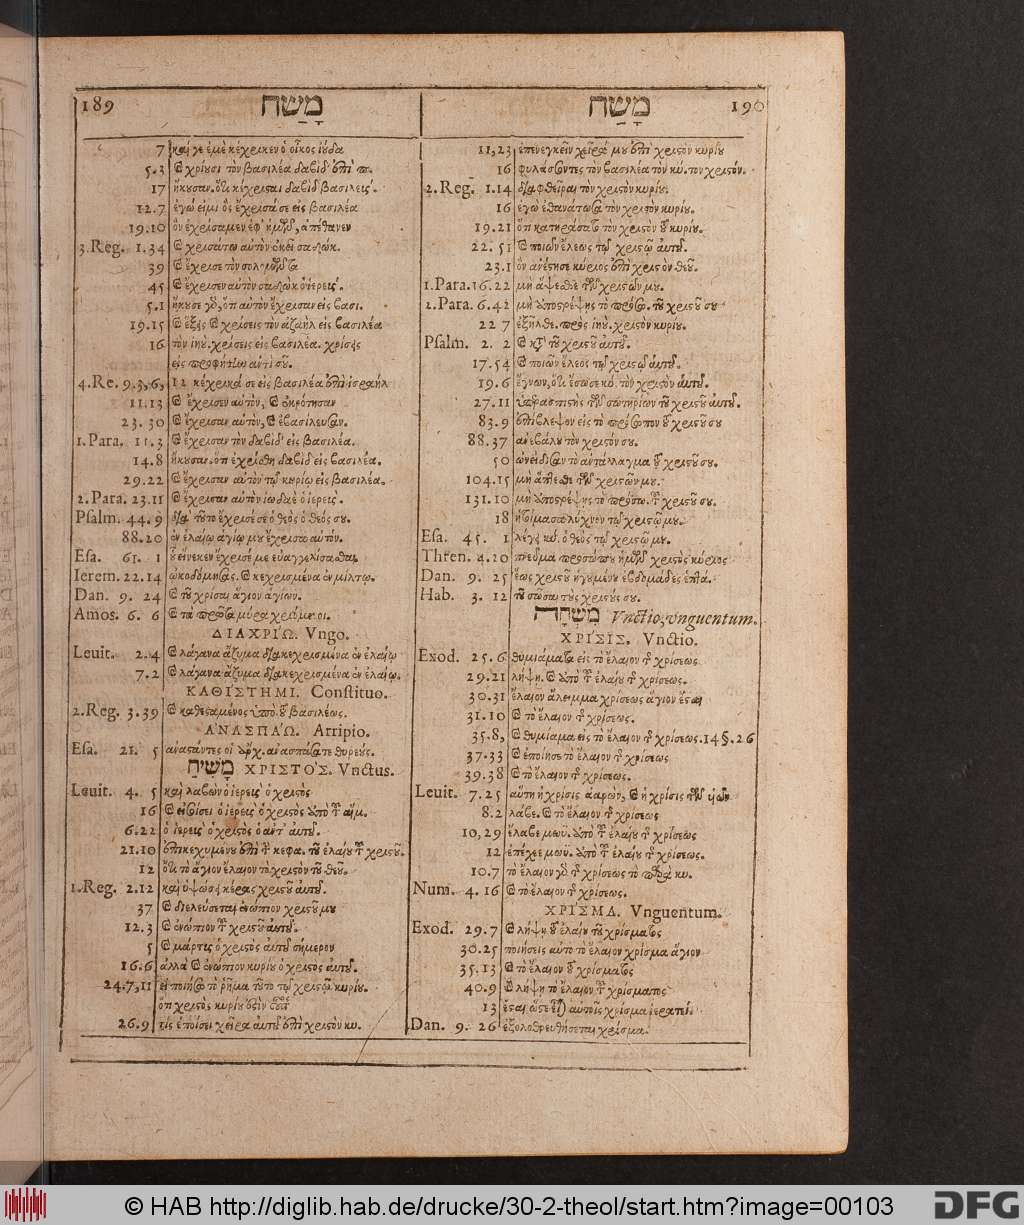 189 מָשַׁח
7 καί γε ἐμὲ κέχρικεν ὁ οἶκος ἰούδα
5.3 καὶ χρίουσι τὸν βασιλέα δαβὶδ ἐπὶ
17 ἤκουσαν. ὅτι κέχρισται δαβὶδ βασιλεὺς.
12.7 ἐγώ εἰμι ὃς ἔχρισά σε εἰς βασιλέα
19.10 ὃν ἐχρίσαμεν ἐφ' ἡμῶν, ἀπέθανεν
3.Reg. 1.34 καὶ χρισάτω αὐτὸν ἐκεῖ σαδώκ.
39 καὶ ἔχρισε τὸν σολομῶντα
45 καὶ ἔχρισεν αὐτὸν σαδὼκ ὁ ἱερεὺς.
5.1 ἤκουσε γὰρ, ὅτι αὐτὸν ἔχρισαν εἰς βασι.
19.15 καὶ ἥξεις καὶ χρίσεις τὸν ἀζαὴλ εἰς βασιλέα
16 τὸν ἰηυ. χρίσεις εἰς βασιλέα. χρίσεις
εἰς προφήτην ἀντὶ σοῦ.
4.Re. 9.3,6, 12 κέχρικά σε εἰς βασιλέα ἐπὶ ἰσραήλ
11.13 καὶ ἔχρισεν αὐτὸν, καὶ ἐκρότησαν
23.30 καὶ ἔχρισαν αὐτὸν, καὶ ἐβασίλευσαν.
1.Para. 11.3 καὶ ἔχρισαν τὸν δαβὶδ εἰς βασιλέα.
14.8 ἤκουσαν. ὅτι ἐχρίσθη δαβὶδ εἰς βασιλέα.
29.22 καὶ ἔχρισαν αὐτὸν τῷ κυρίῳ εἰς βασιλέα.
2.Para. 23.11 καὶ ἔχρισαν αὐτὸν ἰωδαὲ ὁ ἱερεὺς.
Psalm. 44.9 διὰ τοῦτο ἔχρισέ σε ὁ θεὸς ὁ θεός σου.
88.20 ἐν ἐλαίῳ ἁγίῳ μου ἔχρισα αὐτόν.
Esa. 61. 1 οὗ εἵνεκεν ἔχρισέ με εὐαγγελίσασθαι.
Ierem. 22.14 ᾠκοδόμησας. καὶ κεχρισμένα ἐν μίλτῳ.
Dan. 9. 24 καὶ τοῦ χρίσαι ἅγιον ἁγίων.
Amos. 6. 6 καὶ τὰ πρῶτα μύρα χριόμενοι.
ΔΙΑΧΡΙΏ. Vngo.
Leuit. 2.4 καὶ λάγανα ἄζυμα διακεχρισμένα ἐν ἐλαίῳ
7.2 καὶ λάγανα ἄζυμα διακεχρισμένα ἐν ἐλαίῳ.
ΚΑΘΙΣΤΗΜΙ. Constituo.
2.Reg. 3.39 καὶ καθεσταμένος ὑπὸ τοῦ βασιλέως.
ἈΝΑΣΠΆΩ. Arripio.
Esa. 21. 5 ἀναστάντες οἱ ἄρχ. ἀνασπάσατε θυρεούς.
מָשִׁיחַ ΧΡΙΣΤΌΣ. Vnctus.
Leuit. 4. 5 καὶ λαβὼν ὁ ἱερεὺς ὁ χριστὸς
16 καὶ εἰσοίσει ὁ ἱερεὺς ὁ χριστὸς ἀπὸ τοῦ αἵμ.
6.22 ὁ ἱερεὺς ὁ χριστὸς ὁ ἀντ' αὐτοῦ.
21.10 ἐπικεχυμένου ἐπὶ τὴν κεφα. τοῦ ἐλαίου τοῦ χριστοῦ.
12 ὅτι τὸ ἅγιον ἔλαιον τὸ χριστὸν τοῦ θεοῦ.
1.Reg. 2.12 καὶ ὑψώσει κέρας χριστοῦ αὐτοῦ.
37 καὶ διελεύσεται ἐνώπιον χριστοῦ μου
12.3 καὶ ἐνώπιον τοῦ χριστοῦ αὐτοῦ.
5 καὶ μάρτυς ὁ χριστὸς αὐτοῦ σήμερον
16.6 ἀλλὰ καὶ ἐνώπιον κυρίου ὁ χριστὸς αὐτοῦ.
24.7,11 εἰ ποιήσω τὸ ῥῆμα τοῦτο τῷ χριστῷ κυρίου.
ὅτι χριστὸς κυρίου ἐστὶν οὗτος
26.9 τίς ἐποίσει χεῖρα αὐτοῦ ἐπὶ χριστὸν κυ.
מָשַׁח 190
11,23 ἐπενεγκεῖν χεῖρά μου ἐπὶ χριστὸν κυρίου
16 φυλάσσοντες τὸν βασιλέα τὸν κύ. τὸν χριστόν.
2.Reg. 1.14 διαφθεῖραι τὸν χριστὸν κυρίου.
16 ἐγὼ ἐθανάτωσα τὸν χριστὸν κυρίου.
19.21 ὅτι κατηράσατο τὸν χριστὸν τοῦ κυρίου.
22. 51 καὶ ποιῶν ἔλεος τῷ χριστῷ αὐτοῦ.
23.1 ὃν ἀνέστησε κύριος ἐπὶ χριστὸν θεοῦ.
1.Para. 16.22 μὴ ἅψεσθε τῶν χριστῶν μου.
2.Para. 6.42 μὴ ἀποστρέψῃς τὸ πρόσω. τοῦ χριστοῦ σου
22 7 ἐξῆλθε. πρὸς ἰηυ. χριστὸν κυρίου.
Psalm. 2. 2 καὶ κατὰ τοῦ χριστοῦ αὐτοῦ.
17.54 καὶ ποιῶν ἔλεος τῷ χριστῷ αὐτοῦ.
19.6 ἔγνων, ὅτι ἔσωσε κύ. τὸν χριστὸν αὐτοῦ.
27.11 ὑπερασπιστὴς τῶν σωτηρίων τοῦ χριστοῦ αὐτοῦ.
83.9 ἐπίβλεψον εἰς τὸ πρόσωπον τοῦ χριστοῦ σου
88.37 ἀνεβάλου τὸν χριστόν σου.
50 ὠνείδισαν τὸ ἀντάλλαγμα τοῦ χριστοῦ σου.
104.15 μὴ ἅπτεσθε τῶν χριστῶν μου.
131.10 μὴ ἀποστρέψῃς τὸ πρόσω. τοῦ χριστοῦ σου.
18 ἡτοίμασα λύχνον τῷ χριστῷ μου.
Esa. 45. 1 λέγει κύ. ὁ θεὸς τῷ χριστῷ μου.
Thren. 4.20 πνεῦμα προσώπου ἡμῶν χριστὸς κύριος
Dan. 9. 25 ἕως χριστοῦ ἡγουμένου ἑβδομάδες ἑπτά.
Hab. 3. 12 τοῦ σῶσαι τοὺς χριστούς σου.
מִשְׁחָה Vnctio, vnguentum.
ΧΡΊΣΙΣ. Vnctio.
Exod. 25.6 θυμιάματα εἰς τὸ ἔλαιον τῆς χρίσεως
29.21 λήψῃ. καὶ ἀπὸ τοῦ ἐλαίου τῆς χρίσεως.
30.31 ἔλαιον ἄλειμμα χρίσεως ἅγιον ἔσται
31.10 καὶ τὸ ἔλαιον τῆς χρίσεως.
35.8, καὶ θυμίαμα εἰς τὸ ἔλαιον τῆς χρίσεως. 14 §. 26
37.33 καὶ ἐποίησε τὸ ἔλαιον τῆς χρίσεως
39.38 καὶ τὸ ἔλαιον τῆς χρίσεως.
Leuit. 7.25 αὕτη ἡ χρίσις ἀαρὼν, καὶ ἡ χρίσις τῶν υἱῶν
8.2 λάβε. καὶ τὸ ἔλαιον τῆς χρίσεως
10,29 ἔλαβε μωϋ. ἀπὸ τοῦ ἐλαίου τῆς χρίσεως
12 ἐπέχεε μωϋ. ἀπὸ τοῦ ἐλαίου τῆς χρίσεως.
10.7 τὸ ἔλαιον γὰρ τῆς χρίσεως τὸ παρὰ κυ.
Num. 4. 16 καὶ τὸ ἔλαιον τῆς χρίσεως.
ΧΡΙ͂ΣΜΑ. Vnguentum.
Exod. 29.7 καὶ λήψῃ τοῦ ἐλαίου τοῦ χρίσματος
30.25 ποιήσεις αὐτὸ τὸ ἔλαιον χρίσμα ἅγιον
35.13 καὶ τὸ ἔλαιον τοῦ χρίσματος
40.9 καὶ λήψῃ τὸ ἔλαιον τοῦ χρίσματος
13 ἔσται ὥστε εἶναι αὐτοῖς χρίσμα ἱερατεί.
Dan. 9. 26 ἐξολοθρευθήσεται χρίσμα.
© HAB http://diglib.hab.de/drucke/30-2-theol/start.htm?image=00103
DFG